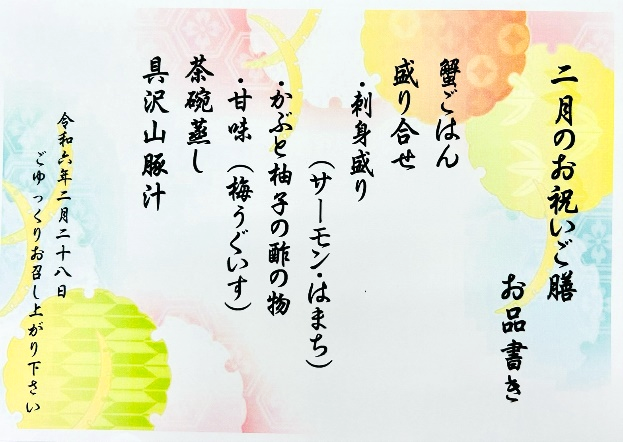 二月のお祝いご膳
お品書き
蟹ごはん
盛り合せ
・刺身盛り
(サーモン・はまち)
・かぶと柚子の酢の物
・甘味(梅うぐいす)
茶碗蒸し
具沢山豚汁
令和六年二月二十八日
ごゆっくりお召し上がり下さい